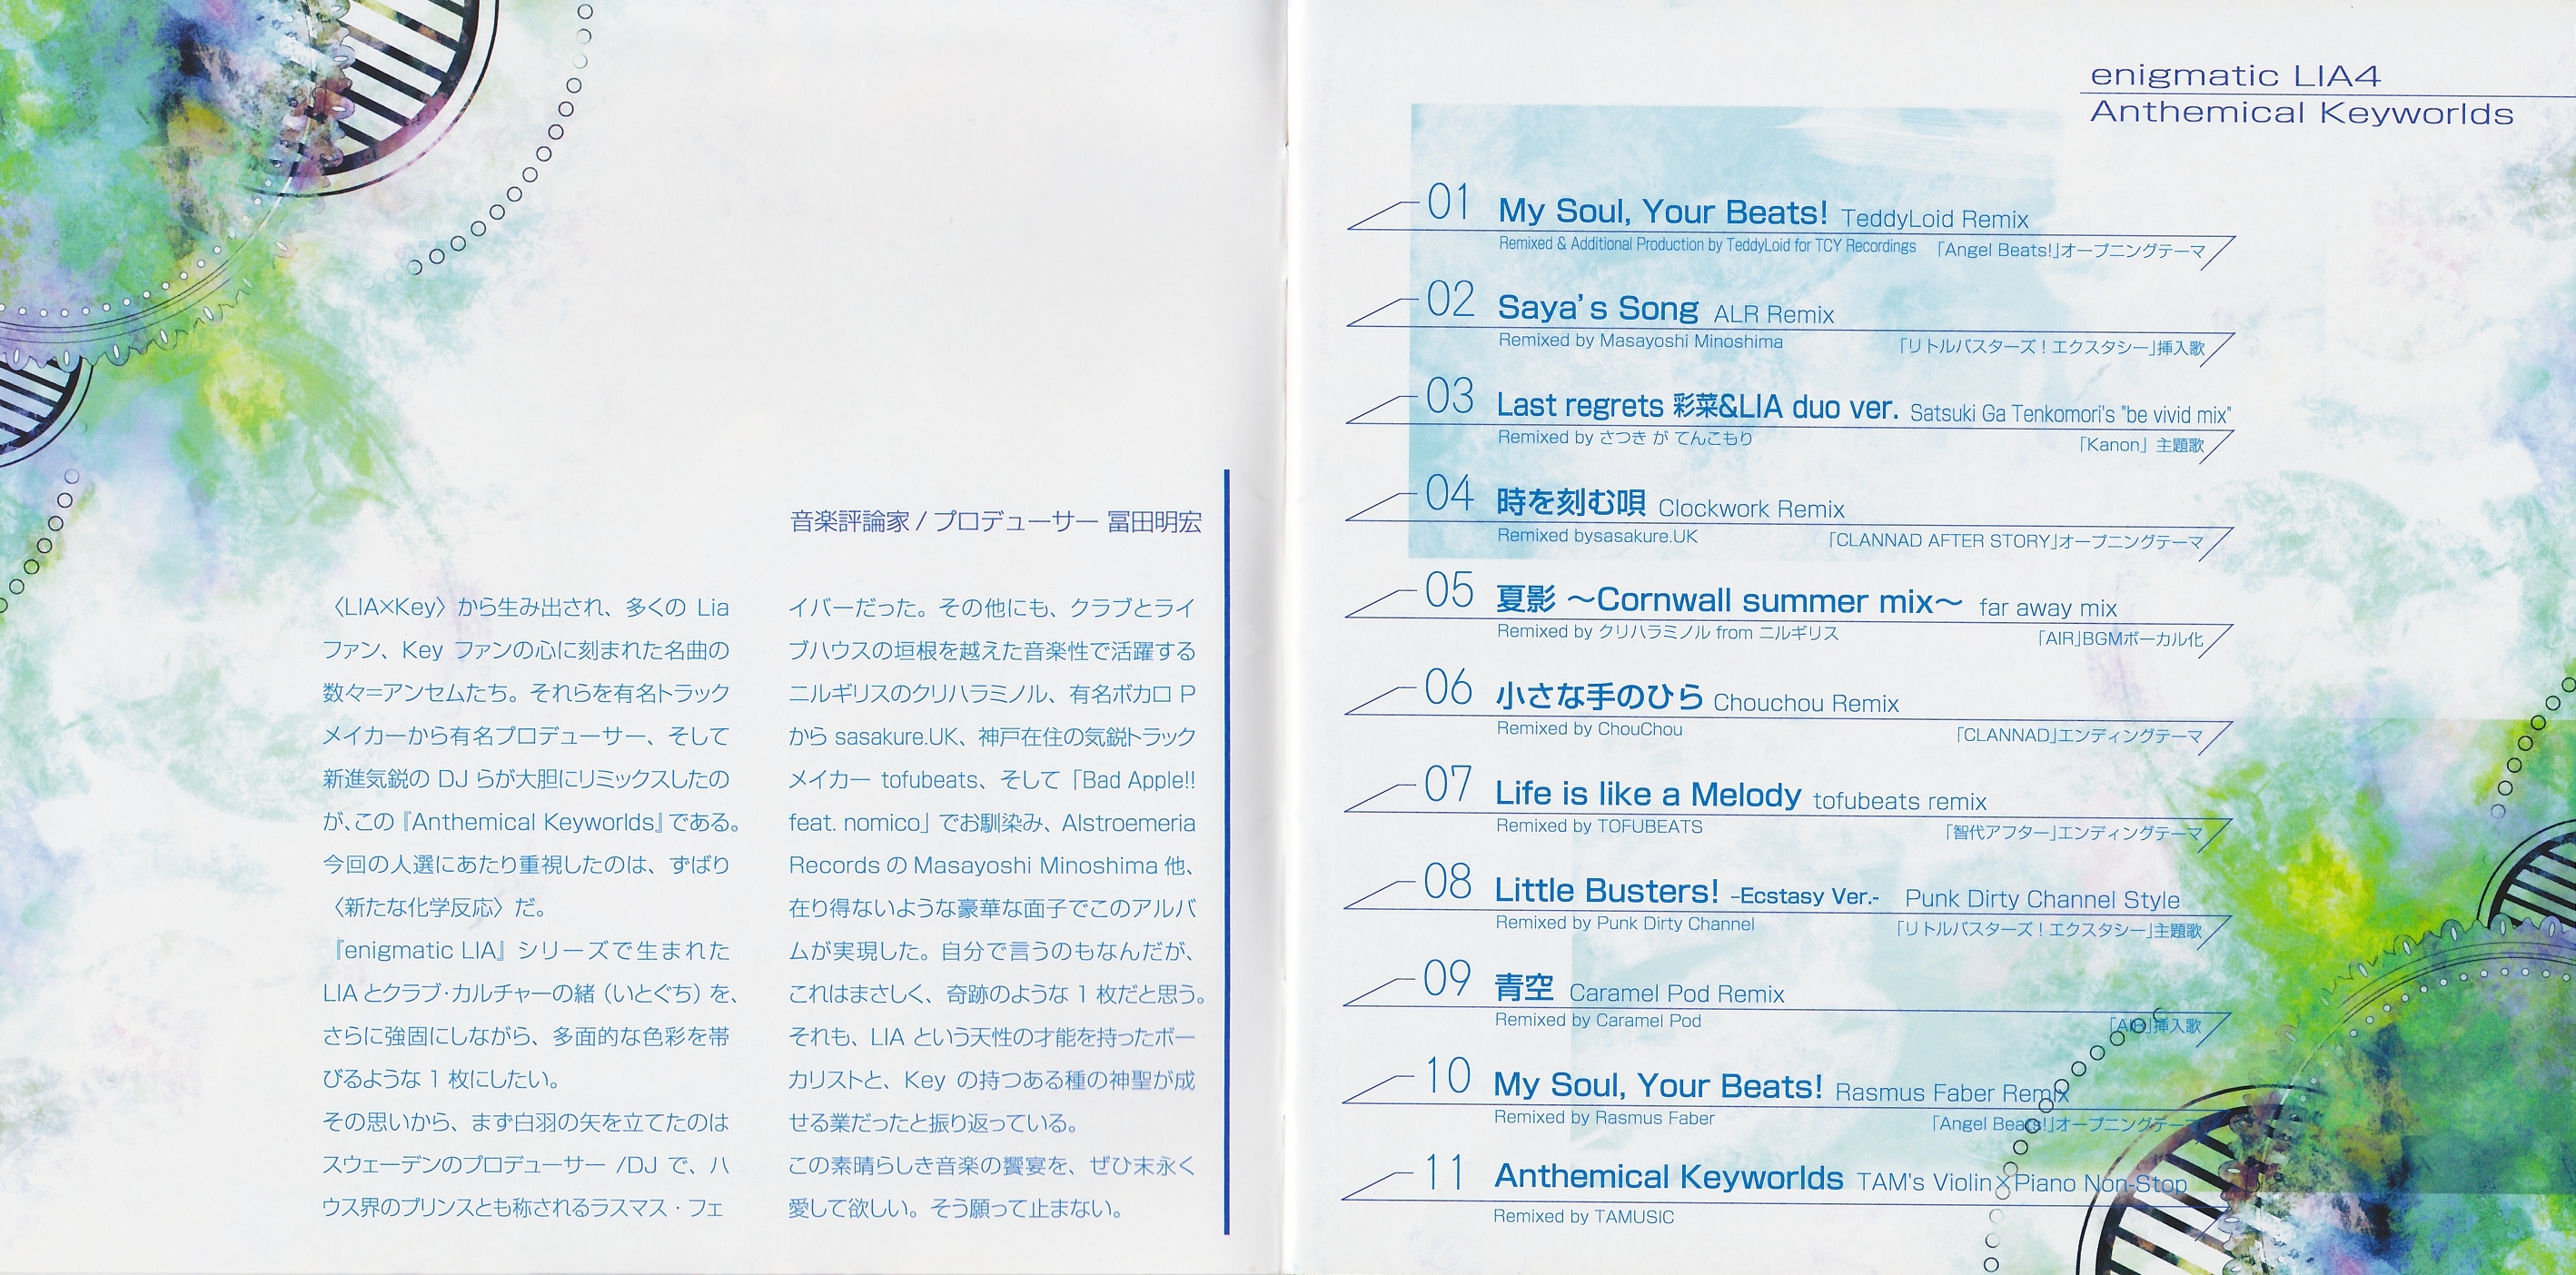 音楽評論家 / プロデューサー 冨田明宏
〈LIA×Key〉から生み出され、多くの Lia
ファン、Key ファンの心に刻まれた名曲の
数々=アンセムたち。それらを有名トラック
メイカーから有名プロデューサー、そして
新進気鋭の DJ らが大胆にリミックスしたの
が、この『Anthemical Keyworlds』である。
今回の人選にあたり重視したのは、ずばり
〈新たな化学反応〉だ。
『enigmatic LIA』シリーズで生まれた
LIA とクラブ・カルチャーの緒（いとぐち）を、
さらに強固にしながら、多面的な色彩を帯
びるような 1 枚にしたい。
その思いから、まず白羽の矢を立てたのは
スウェーデンのプロデューサー /DJ で、ハ
ウス界のプリンスとも称されるラスマス・フェ
イバーだった。その他にも、クラブとライ
ブハウスの垣根を越えた音楽性で活躍する
ニルギリスのクリハラミノル、有名ボカロ P
から sasakure.UK、神戸在住の気鋭トラック
メイカー tofubeats、そして「Bad Apple!!
feat. nomico」でお馴染み、Alstroemeria
Records の Masayoshi Minoshima 他、
在り得ないような豪華な面子でこのアルバ
ムが実現した。自分で言うのもなんだが、
これはまさしく、奇跡のような 1 枚だと思う。
それも、LIA という天性の才能を持ったボー
カリストと、Key の持つある種の神聖が成
せる業だったと振り返っている。
この素晴らしき音楽の饗宴を、ぜひ末永く
愛して欲しい。そう願って止まない。
enigmatic LIA4
Anthemical Keyworlds
01 My Soul, Your Beats! TeddyLoid Remix
Remixed & Additional Production by TeddyLoid for TCY Recordings 「Angel Beats!」オープニングテーマ
02 Saya's Song ALR Remix
Remixed by Masayoshi Minoshima 「リトルバスターズ！エクスタシー」挿入歌
03 Last regrets 彩菜&LIA duo ver. Satsuki Ga Tenkomori's "be vivid mix"
Remixed by さつき が てんこもり 「Kanon」 主題歌
04 時を刻む唄 Clockwork Remix
Remixed bysasakure.UK 「CLANNAD AFTER STORY」オープニングテーマ
05 夏影 〜Cornwall summer mix〜 far away mix
Remixed by クリハラミノル from ニルギリス 「AIR」BGMボーカル化
06 小さな手のひら Chouchou Remix
Remixed by ChouChou 「CLANNAD」エンディングテーマ
07 Life is like a Melody tofubeats remix
Remixed by TOFUBEATS 「智代アフター」エンディングテーマ
08 Little Busters! -Ecstasy Ver.- Punk Dirty Channel Style
Remixed by Punk Dirty Channel 「リトルバスターズ！エクスタシー」主題歌
09 青空 Caramel Pod Remix
Remixed by Caramel Pod 「AIR」挿入歌
10 My Soul, Your Beats! Rasmus Faber Remix
Remixed by Rasmus Faber 「Angel Beats!」オープニングテーマ
11 Anthemical Keyworlds TAM's Violin×Piano Non-Stop
Remixed by TAMUSIC